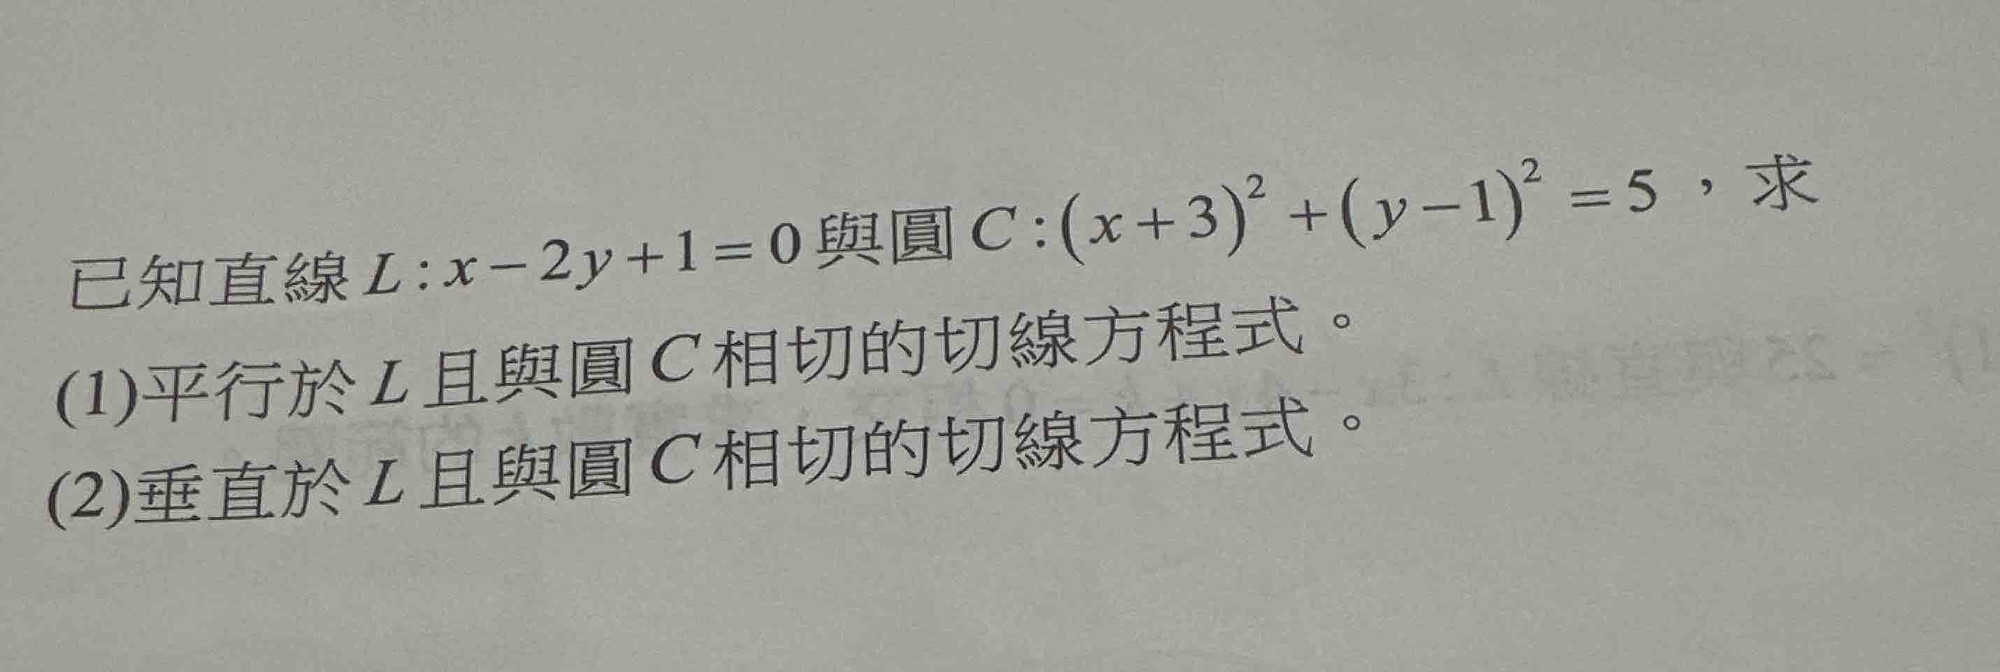 已知直線 L:x−2y+1=0 與圓 C:(x+3)²+(y−1)²=5,求
(1)平行於 L 且與圓 C 相切的切線方程式。
(2)垂直於 L 且與圓 C 相切的切線方程式。